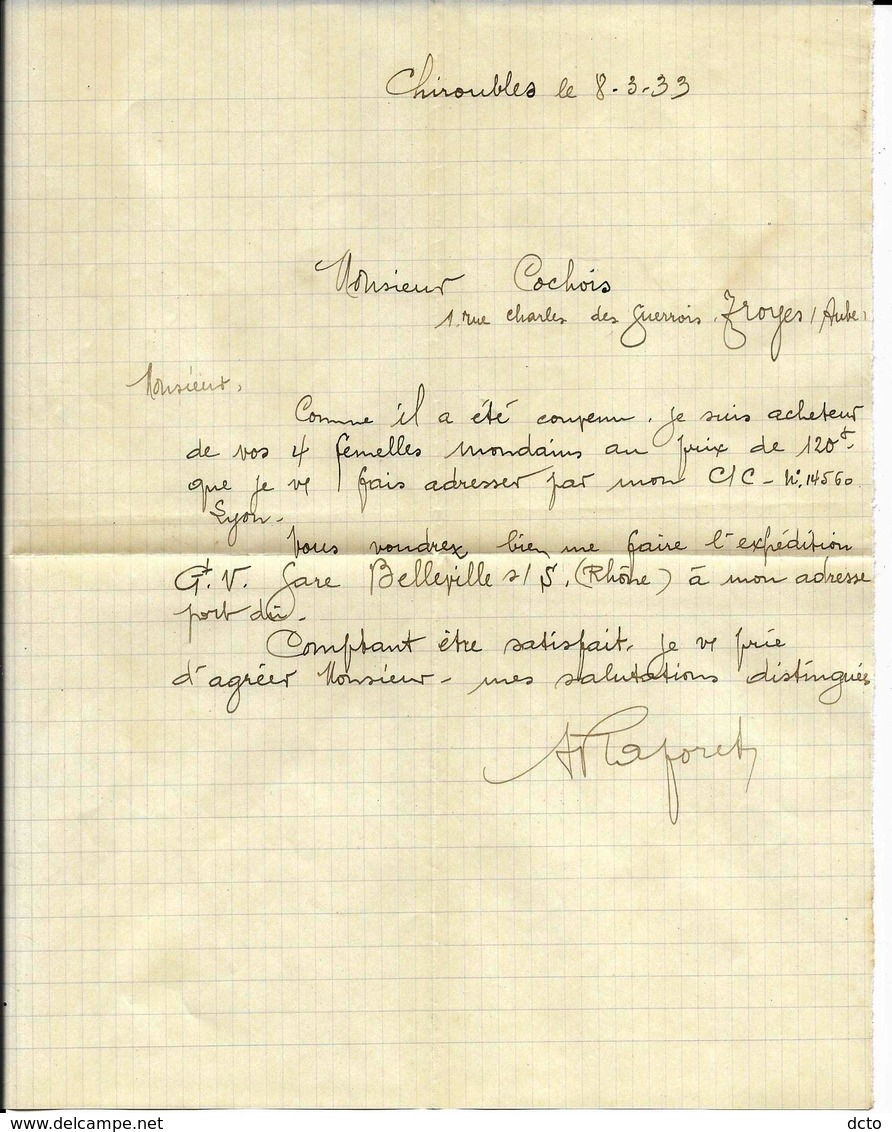 Chiroubles le 8-3-33
Monsieur Cochois
1. rue Charles des Guerrois. Troyes (Aube)
Monsieur,
Comme il a été convenu. je suis acheteur
de vos 4 femelles mondains au prix de 120f.
que je vs fais adresser par mon C/C - N°. 14560
Lyon -
Vous voudrez bien me faire l'expédition
Gt. V. Gare Belleville s/ S. (Rhône) à mon adresse
port dû -
Comptant être satisfait. je vs prie
d'agréer Monsieur - mes salutations distinguées
Laforet
www.delcampe.net
dcto